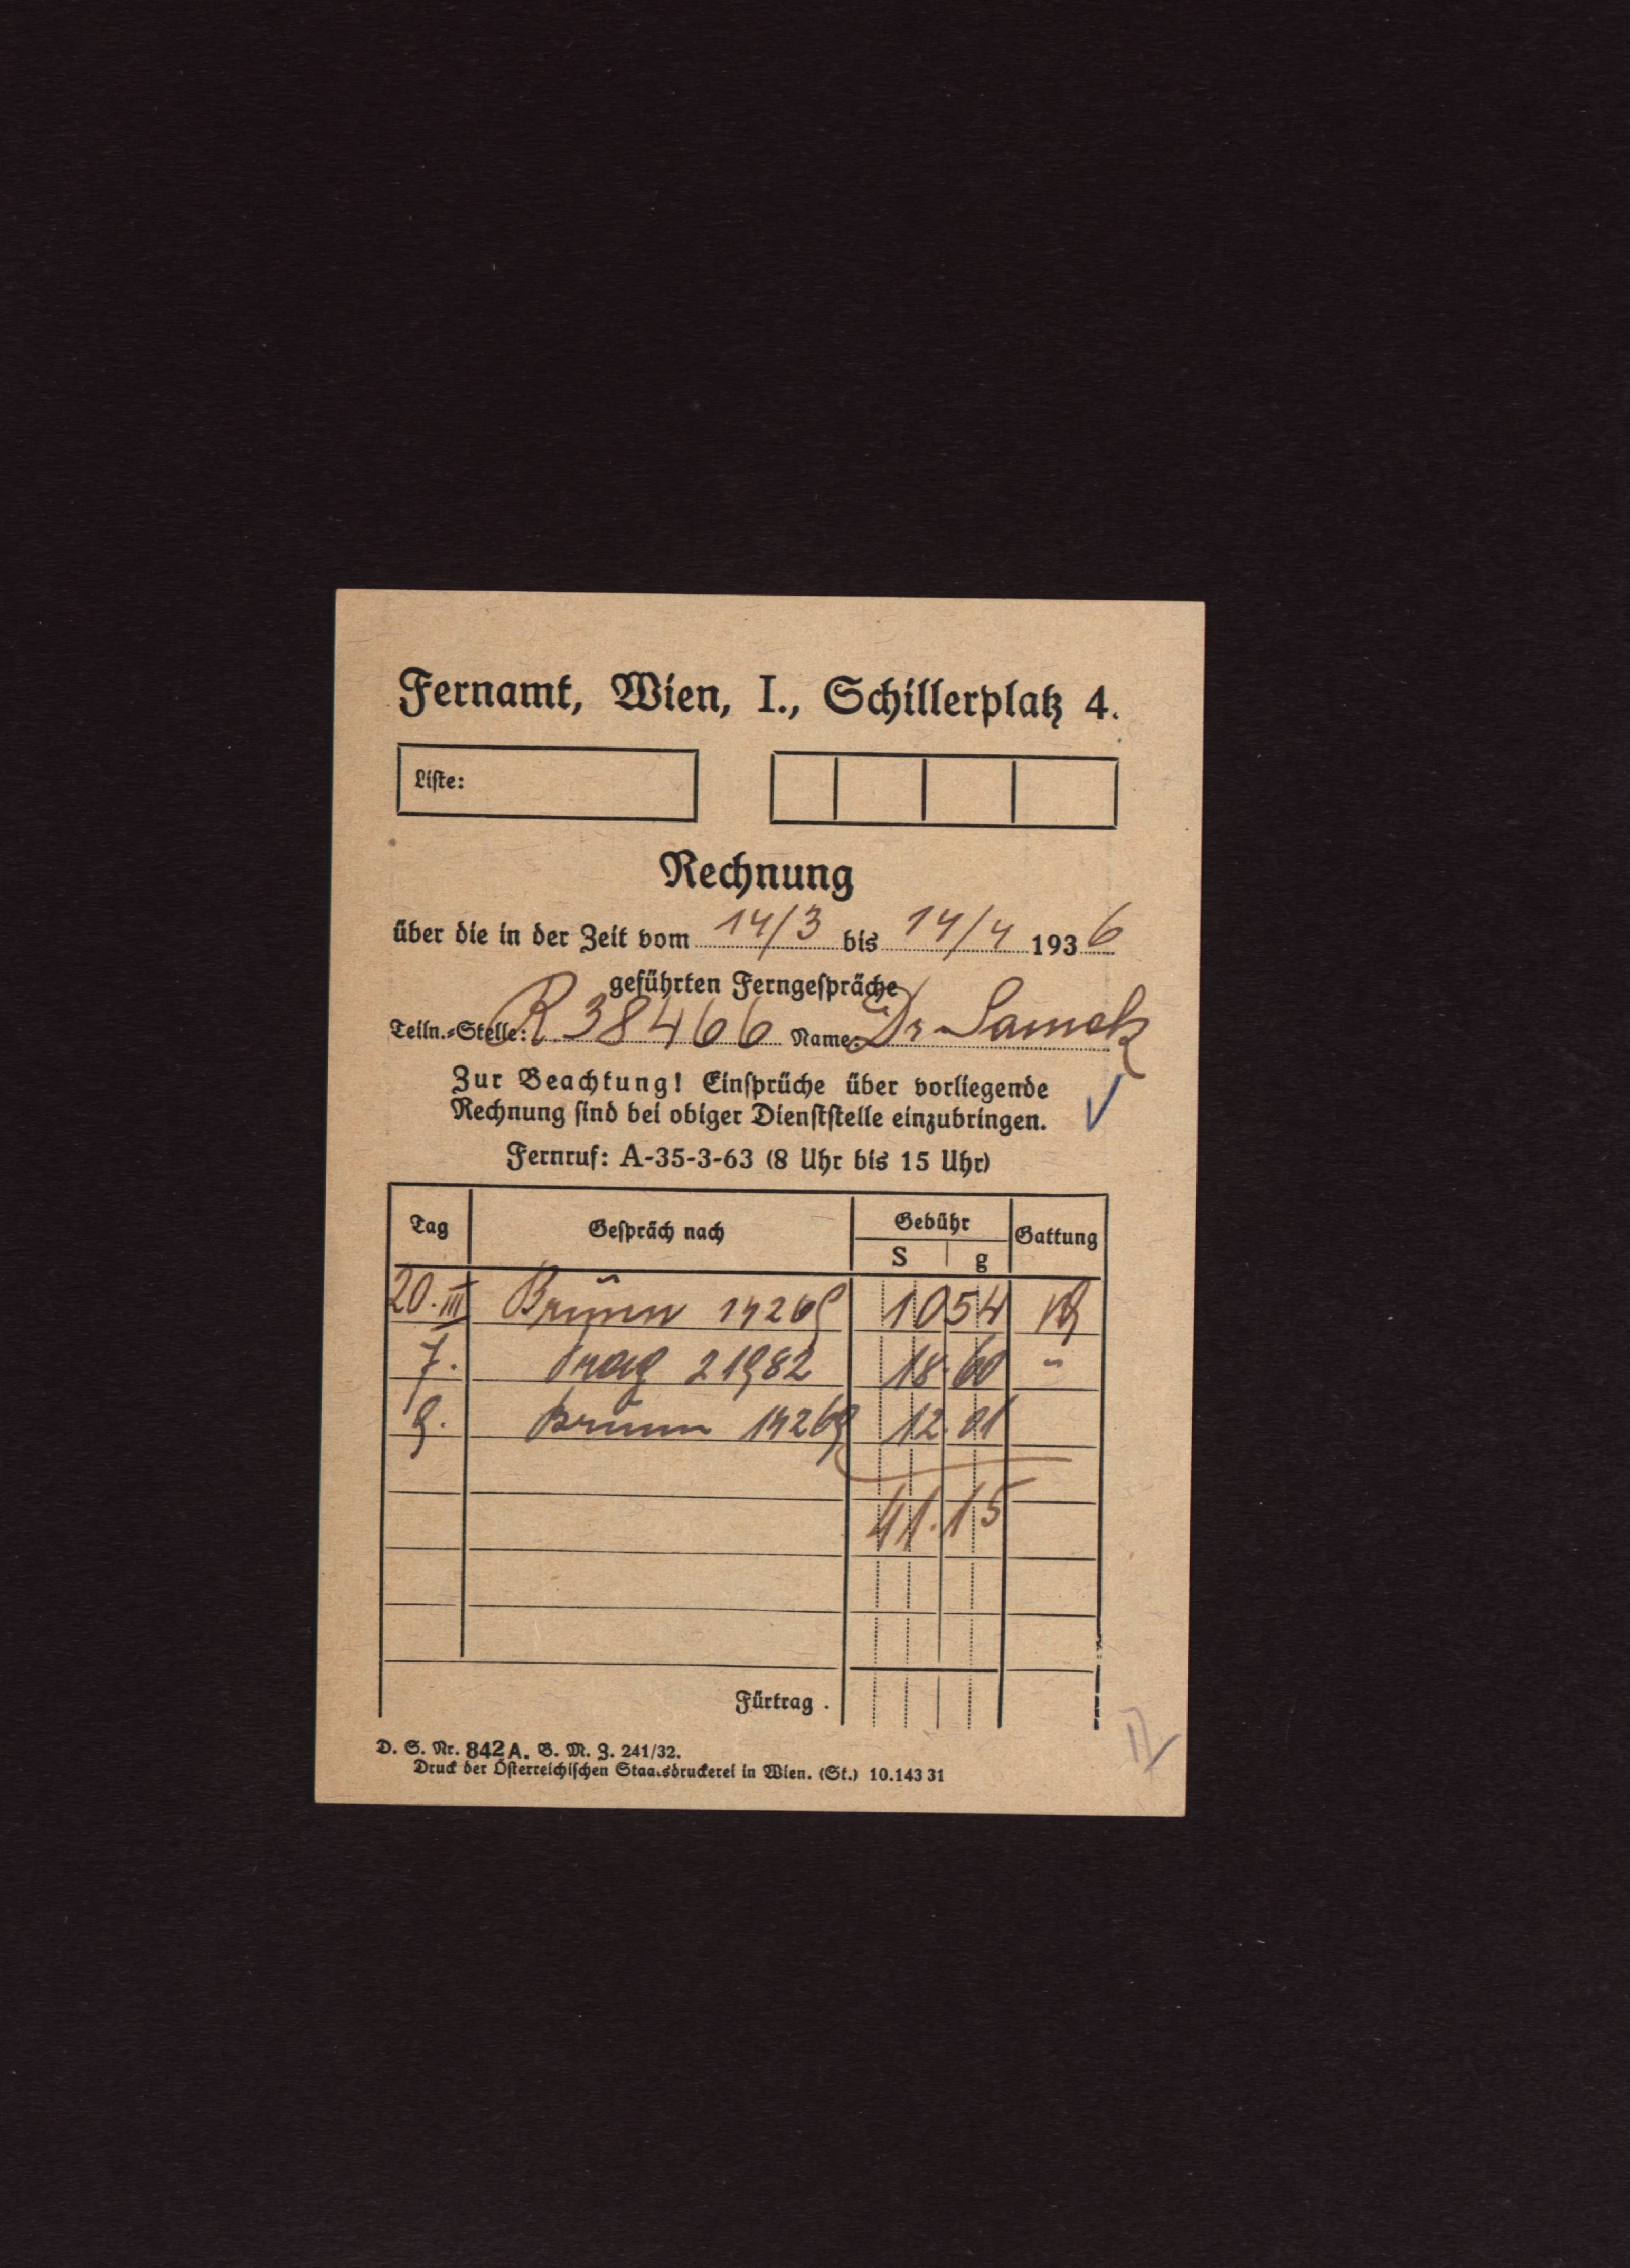 Fernamt, Wien, I., Schillerplatz 4.
Liste:
Rechnung
über die in der Zeit vom 14/3 bis 14/4 1936
geführten Ferngespräche
Teiln.-Stelle: R 38466 Name: Dr Samek
Zur Beachtung! Einsprüche über vorliegende
Rechnung sind bei obiger Dienststelle einzubringen.
Fernruf: A-35-3-63 (8 Uhr bis 15 Uhr)
Tag Gespräch nach Gebühr Gattung
S g
20.III Brünn 14269 10 54
7. Prag 21982 18.60 "
9. Brünn 14269 12.01
41.15
Fürtrag .
D. S. Nr. 842 A. B. M. Z. 241/32.
Druck der Österreichischen Staatsdruckerei in Wien. (St.) 10.143 31